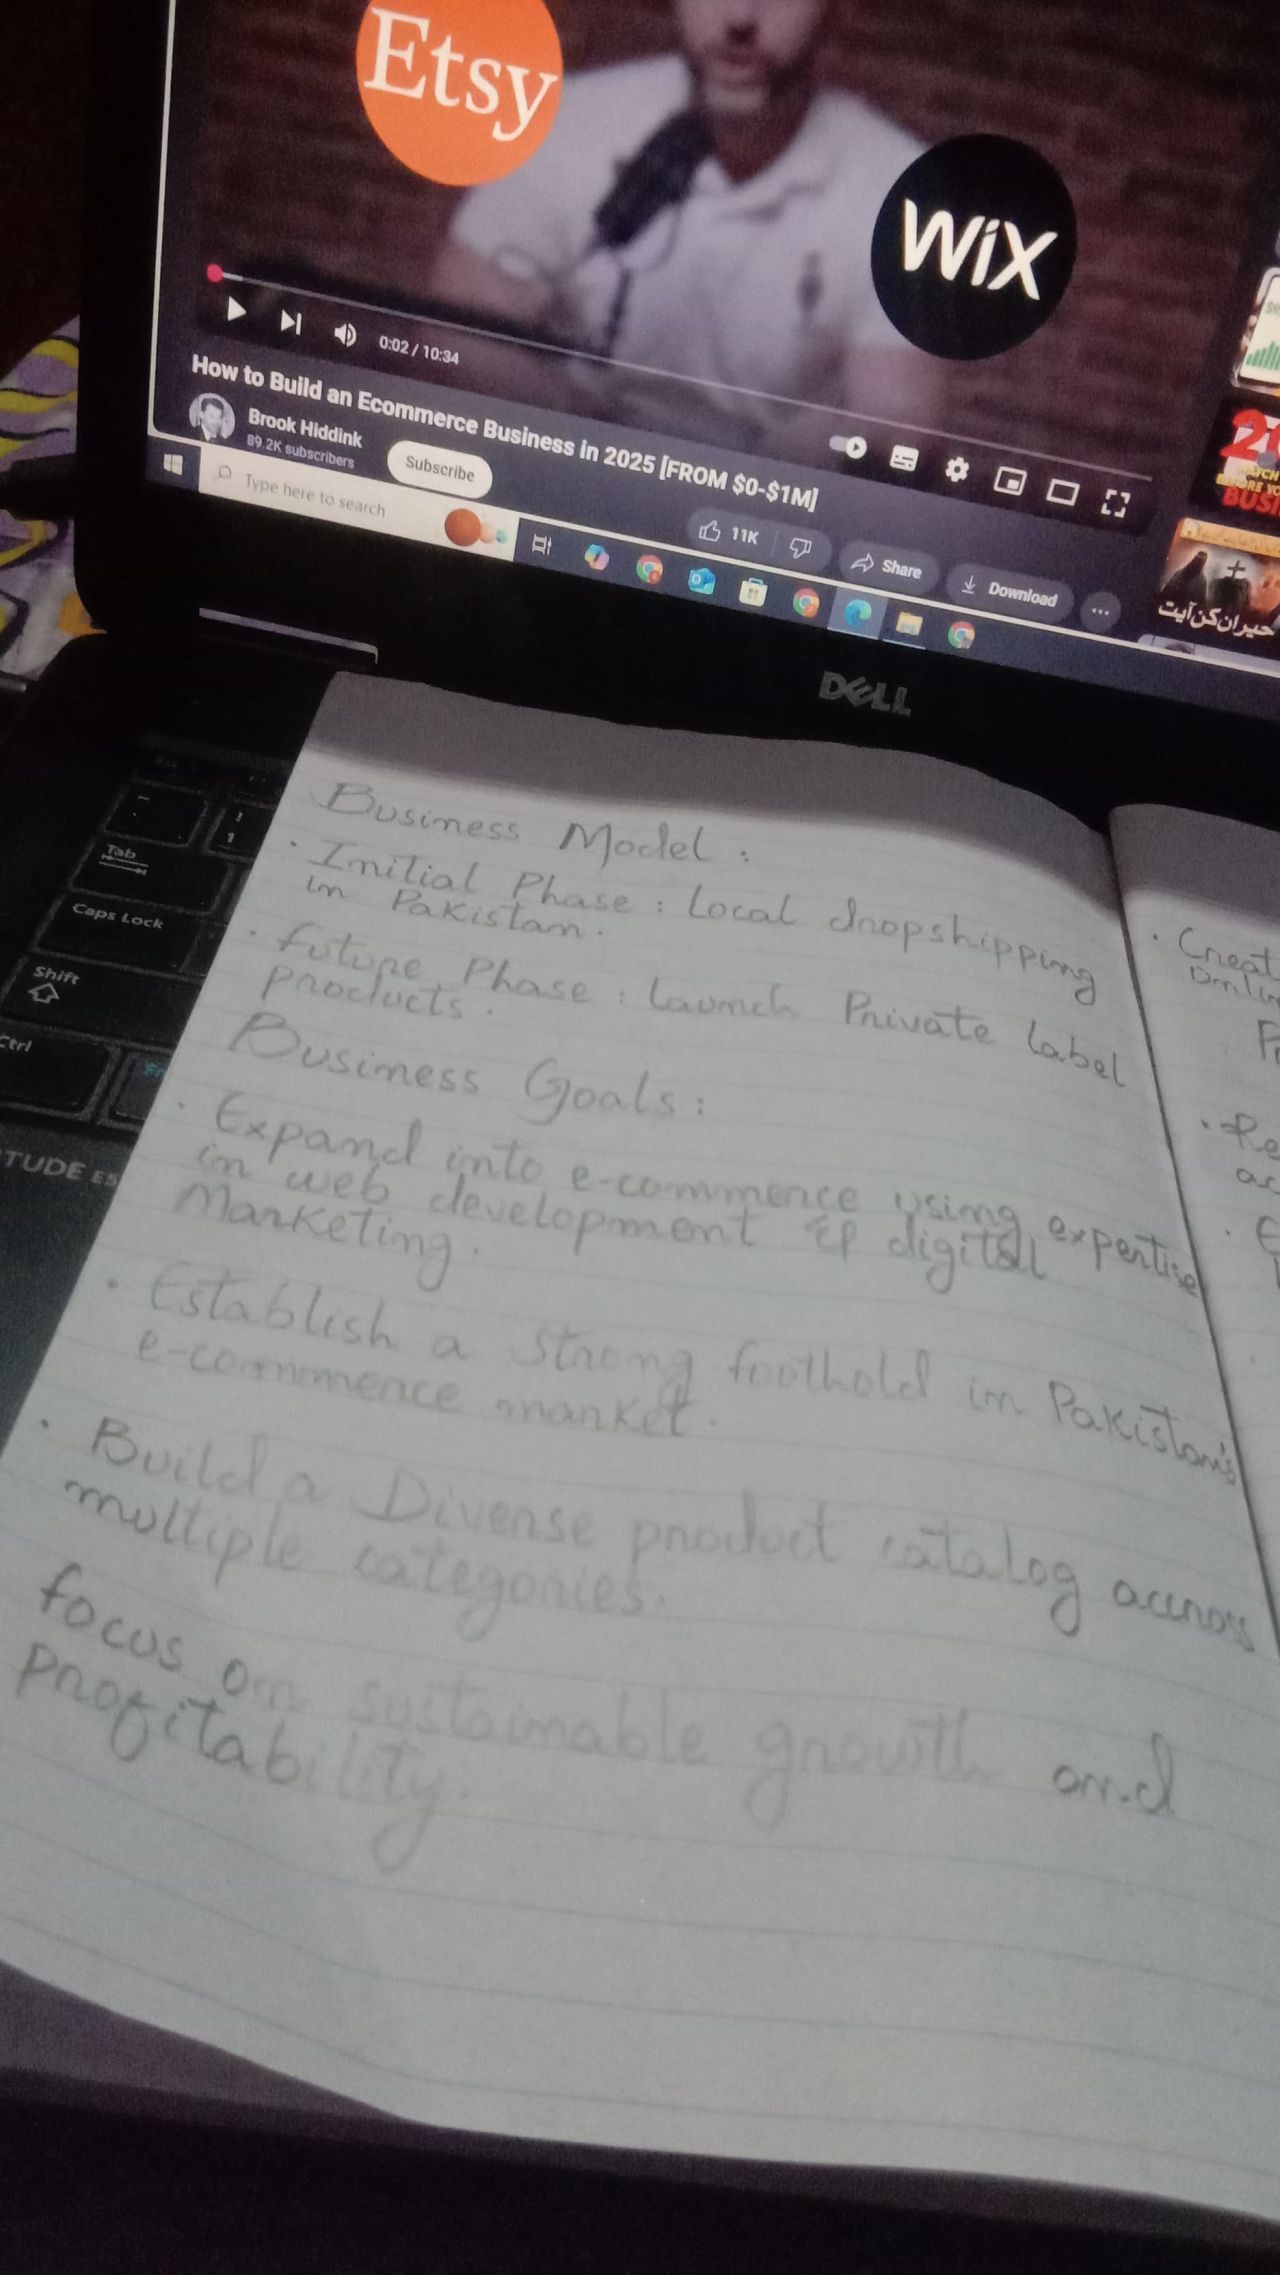 Etsy
WiX
0:02 / 10:34
How to Build an Ecommerce Business in 2025 [FROM $0-$1M]
Brook Hiddink
89.2K subscribers
Subscribe
11K
Share
Download
Type here to search
حیران کن آیت
DELL
Tab
Caps Lock
Shift
Ctrl
Fn
Business Model :
· Initial Phase : Local dropshipping
in Pakistan.
· Future Phase : Launch Private label
products.
Business Goals :
· Expand into e-commerce using expertise
in web development & digital
Marketing.
· Establish a strong foothold in Pakistan's
e-commerce market.
· Build a Diverse product catalog accross
multiple categories.
focus on sustainable growth and
profitability.